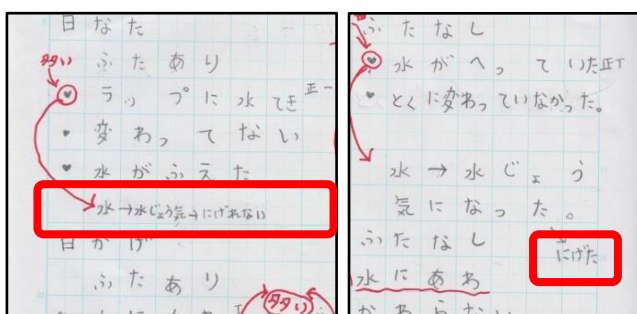 日なた
多い
ふたあり
ラップに水てき 正一
変わってない
水がふえた
水→水じょう気→にげれない
日かげ
ふたあり
多い
ふたなし
水がへっていた正丅
とくに変わっていなかった。
水→水じょう
気になった。
ふたなし
にげた
水にあわ
かわらない